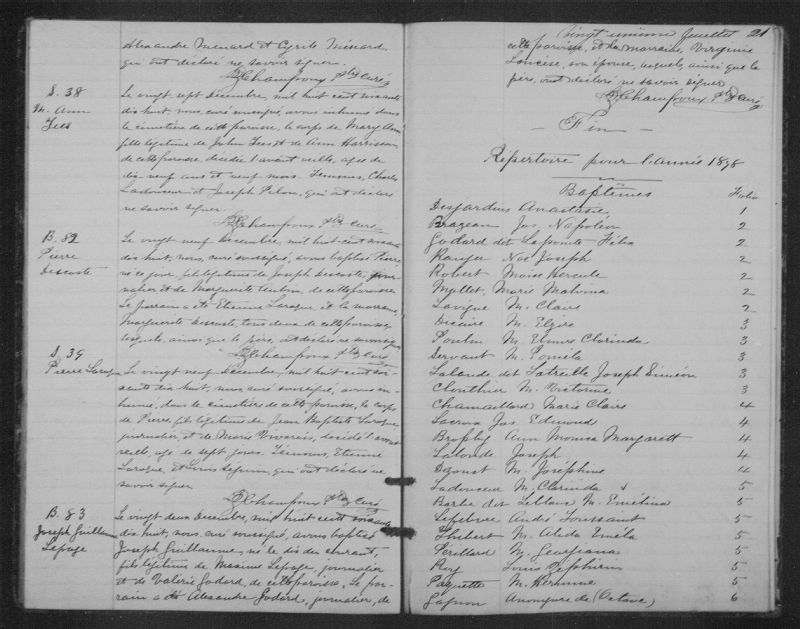 Alexandre Ménard et Cyrile Ménard
qui ont déclaré ne savoir signer.
Chamfoux Ptre curé
S. 38
M. Ann
Lees
Le vingt sept Décembre, mil huit cent soixante
dix huit, nous, curé soussigné, avons inhumé dans
le cimetière de cette paroisse, le corps de Mary Ann
fille légitime de John Lees et de Ann Harrison
de cette paroisse, décédée l'avant veille, agée de
dix neuf ans et neuf mois. Témoins, Charles
Ladouceur et Joseph Pilon, qui ont déclaré
ne savoir signer.
Chamfoux Ptre curé
B. 82
Pierre
Descoste
Le vingt neuf Décembre, mil huit cent soixante
dix huit, nous, curé soussigné, avons baptisé Pierre
né ce jour, fils légitime de Joseph Descoste, jour-
nalier, et de Marguerite, de cette paroisse
Le parrain a été Etienne Laroque, et la marraine,
Marguerite Descoste, tous deux de cette paroisse,
lesquels, ainsi que le père, ont déclaré ne savoir signer
Chamfoux Ptre curé
S. 39
Pierre Laroque
Le vingt neuf Décembre, mil huit cent soi-
xante dix huit, nous, curé soussigné, avons in-
humé, dans le cimetière de cette paroisse, le corps
de Pierre, fils légitime de Jean Baptiste Laroque,
journalier, et de Marie, décédé l'avant
veille, agé de sept jours. Témoins, Etienne
Laroque, et Louis Seguin, qui ont déclaré ne
savoir signer
Chamfoux Ptre curé
B. 83
Joseph Guillaume
Lepage
Le vingt deux Décembre, mil huit cent soixante
dix huit, nous, curé soussigné, avons baptisé
Joseph Guillaume, né le dix du courant,
fils légitime de Maxime Lepage, journalier
et de Valérie Godard, de cette paroisse. Le par-
rain a été Alexandre Godard, journalier, de
Vingt unième feuillet 21
cette paroisse, et la marraine, Virginie
son épouse, lesquels, ainsi que le
père, ont déclaré ne savoir signer
Chamfoux Ptre Curé
- Fin -
Répertoire pour l'année 1878
Baptêmes Folio
Desjardins Anastasie, 1
Brazeau Jos. Napoléon 2
Godard dit Lapointe Félix 2
Ranger Noé Joseph 2
Robert Moïse Hercule 2
Myllet, Marie Malvina 2
Lavigne M. Claire 2
M. Elzire 3
Poulin M. Elmire Clarinda 3
Servant M. Poméla 3
Lalonde dit Latreille Joseph Siméon 3
Clouthier M. Victorine 3
Chamaillard Marie Claire 4
Lacroix Jos. Edmond 4
Brophy Ann Monica Margarett 4
Lalonde Joseph 4
M. Joséphine 4
Ladouceur M. Clarinda 5
Barbe dit Leblanc M. Emélina 5
Lefebvre André Toussaint 5
Thibert M. Alida Eméla 5
Périllard M. Georgiana 5
Roy Louis Zéphirin 5
Paquette M. Hermine 5
Gagnon Anonyme de (Octave) 6